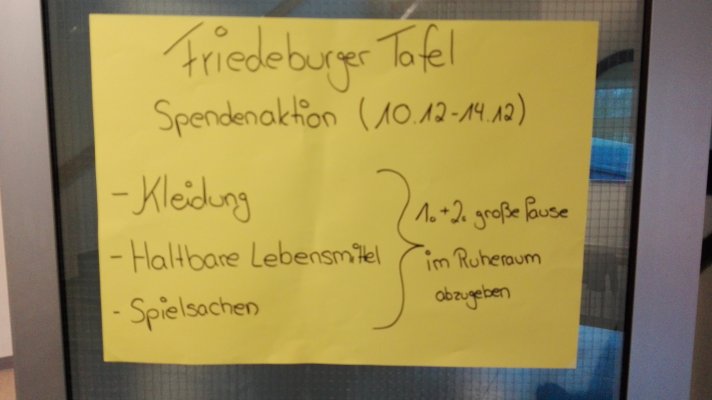 Friedeburger Tafel
Spendenaktion (10.12-14.12)
- Kleidung
- Haltbare Lebensmittel
- Spielsachen
1.+2. große Pause
im Ruheraum
abzugeben